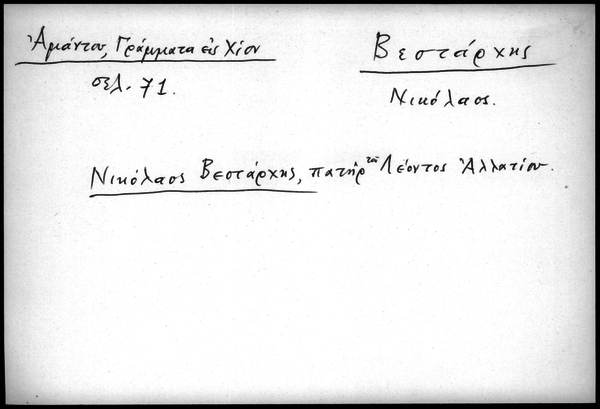 Ἀμάντου, Γράμματα εἰς Χίον
σελ. 71.
Βεστάρχης
Νικόλαος.
Νικόλαος Βεστάρχης, πατὴρ τοῦ Λέοντος Ἀλλατίου.